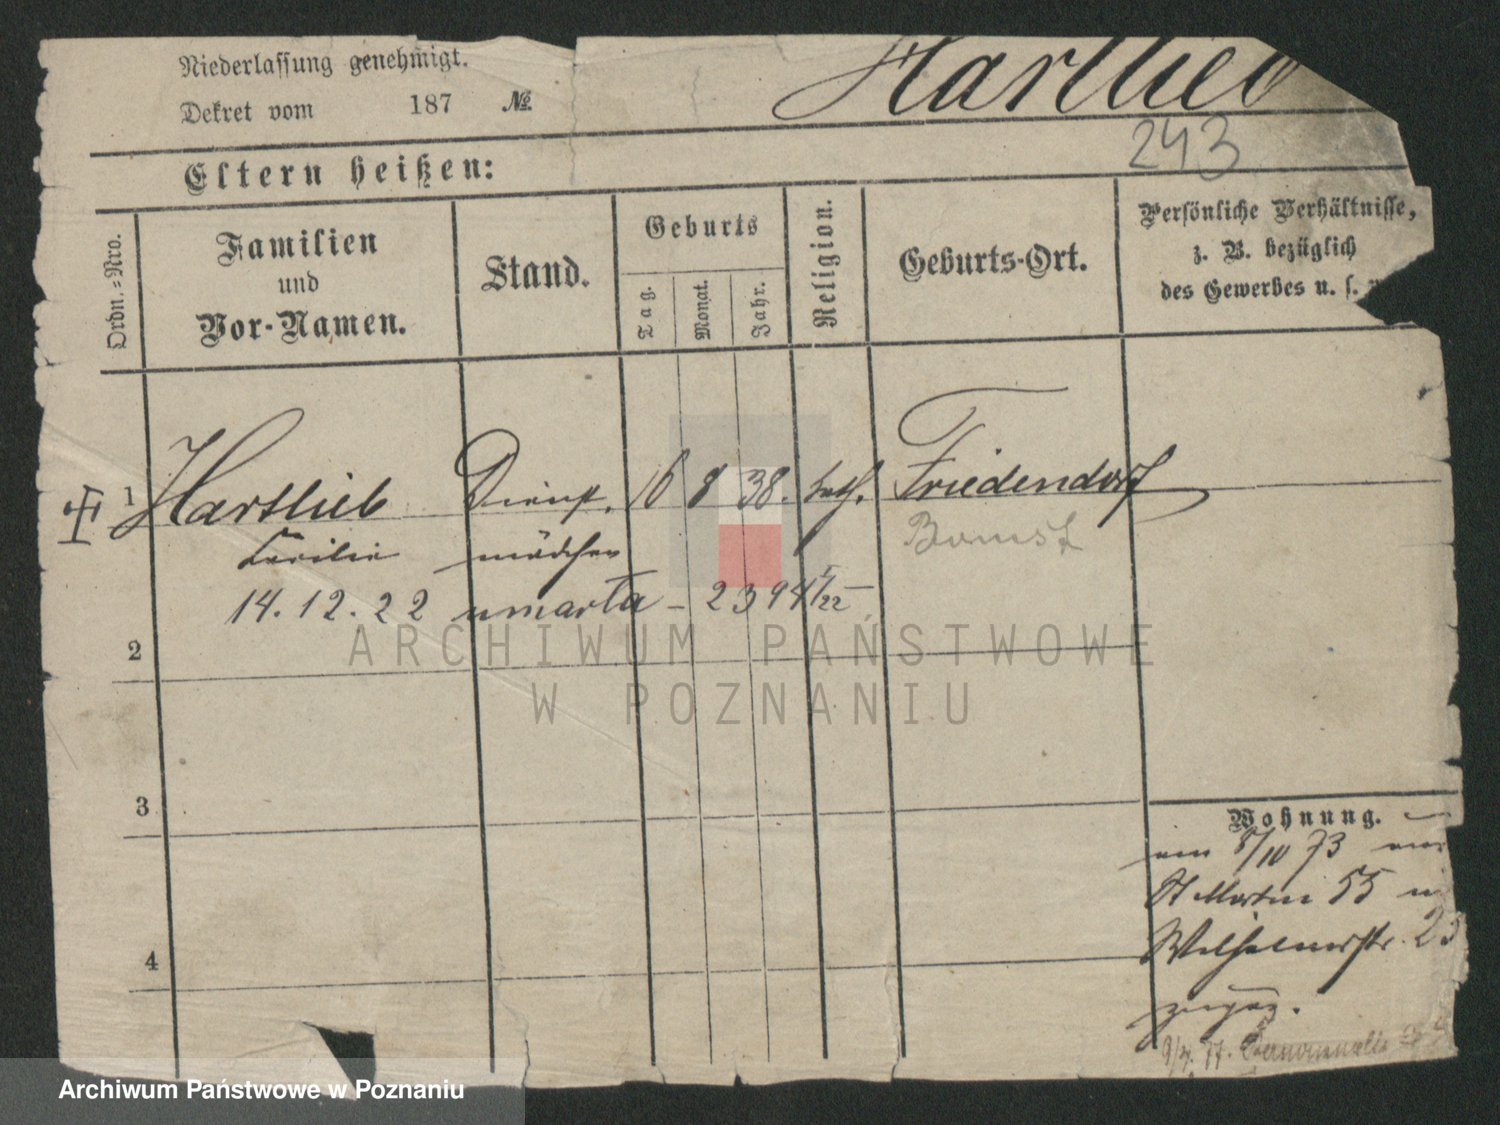 Niederlassung genehmigt.
Dekret vom 187 №
Hartlieb
243
Eltern heißen:
Ordn.-Nro.
Familien
und
Vor-Namen.
Stand.
Geburts
Tag.
Monat.
Jahr.
Religion.
Geburts-Ort.
Persönliche Verhältnisse,
z. B. bezüglich
des Gewerbes u. s.
1 Hartlieb Dienst. 16 8 38. kath. Friedendorf
Cecilie mädchen Bomst
14.12.22 umarła – 2394 I/22
2
3
4
Wohnung.
am 8/10 73 von
St Martin 55
Wilhelmstr. 23
zugez.
9/4. 77.
ARCHIWUM PAŃSTWOWE
W POZNANIU
Archiwum Państwowe w Poznaniu